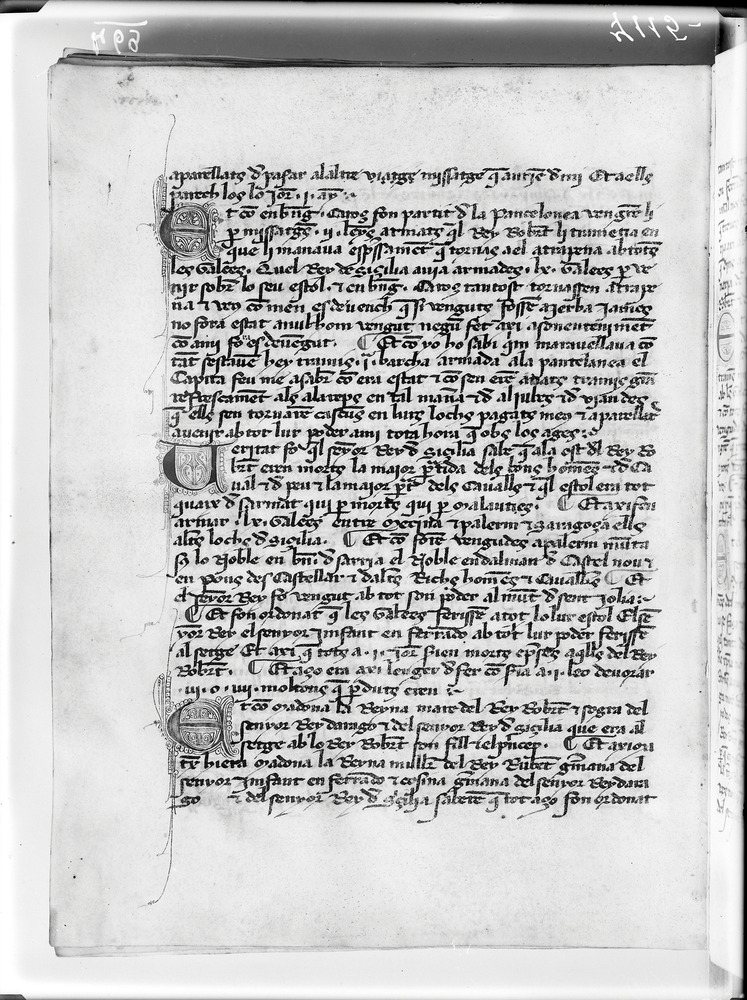 aparellats d pasar alaltre viatge missatge q̄ antre d mi Et a ells
parech los lo Jor̄ · ii · an̄y
Et cō en bn̄g · Carros son partit d la Pantelonea vengrē li
p̄ missatgēs · ii · leys armats q̄l Rey Robert li trametia en
que li manava espr̄samēt q̄ tornas a el a trapena ab totes
les Galees · Quel Rey de Sicilia avia armades · lx · Galees p̄ ve
nir sobr̄ lo seu estol · ⁊ en bn̄g · Carros tantost tornassen a trape
na ⁊ veu cō men es devench q̄ si venguts fossē a Jerba James
no fora estat anul hom vengut negū fet axi
cō ami fo es devengut · Et cō yo ho sabi q̄m maravellava cō
tāt s estavē hey trames · i · barcha armada ala pantelanea el
Capita feu me a sabr̄ cō era estat ⁊ cō sen erē anats trames grā
refrescamēt
q̄ ells sen tornarē cascus en lurs lochs pagats meu ⁊ aparellat
a venir ab tot lur poder a mi tota hora q̄ obs los ages
Veritat fo q̄l senyor Rey d Sicilia saberch q̄ ala ost dl Rey Ro
bert eren morts la major p̄tida dels bons homēs ⁊ d Ca
vall ⁊ d peu ⁊ la major p̄t dels Cavalls ⁊ q̄l estol era tot
quax dsarmat qui p̄ morts qui p̄ malauties · Et axi feu
armar · lx · Galees entre Mecina ⁊ palerm ⁊ Saragoça ⁊ ells
altes lochs d Sicilia · Et cō forē vengudes a palerm munta
sy lo Noble en bn̄ · d sarria el Noble en dalmau d Castel nou ⁊
en pons des Castellar ⁊ daltres Richs homēs ⁊ Cavallrs Et
el senyor Rey fo vengut ab tot son poder al mūt d sent Jolia
Et fon ordonat q̄ les Galees ferissē a tot lo lur estol El sē
yor Rey el senyor Infant en ferrādo ab tot lur poder ferissē
al setge Et axi q̄ tots a · i · Jor̄ fien morts ⁊ preses aq̄lls del Rey
Robert · Et aço era axi leuger d fer cō fra a · i · leo devorar
· iii · o · iiii · moltons q̄ p̄duts eren
Et cō madona la Reyna mare del Rey Robert ⁊ sogra del
senyor Rey darago ⁊ del senyor Rey d Sicilia que era al
setge ab lo Rey Robert son fill ⁊ el prīcep · Et axi ou
tx hi era madona la Reyna muller del Rey Robert gmana del
senyor Infant en ferrādo ⁊ cosina gmana del senyor Rey dara
go ⁊ del senyor Rey d Sicilia saberē q̄ tot aço fon ordonat